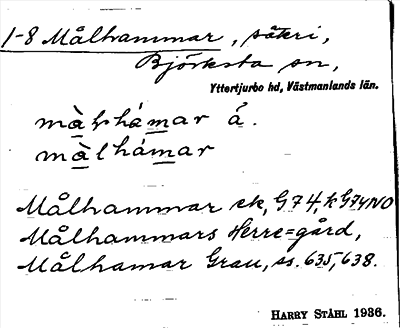 1-8 Målhammar, säteri,
Björksta sn,
Yttertjurbo hd, Västmanlands län.
màl̥hámar å̀.
màlhámar
Målhammar ek, G74, k G74NO
Målhammars Herre=gård,
Målhamar Grau, ss. 635, 638.
HARRY STÅHL 1936.